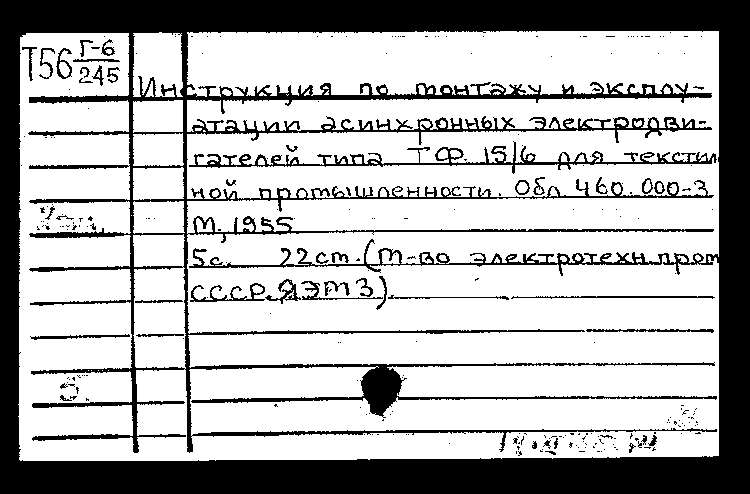 Т56 Г-6
245
Инструкция по монтажу и эксплу-
атации асинхронных электродви-
гателей типа ТФ 15/6 для текстил
ной промышленности. Обл 460.000-3
М., 1955
5с. 22cm. (М-во электротехн. пром
СССР. ЯЭМЗ).
5.